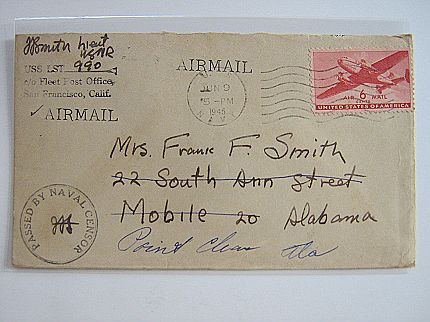 JFSmith Lieut
USNR
USS LST 990
c/o Fleet Post Office
San Francisco, Calif.
AIRMAIL
AIRMAIL
JUN 9
5-PM
1945
AIR 6¢ MAIL
UNITED STATES OF AMERICA
Mrs. Frank F. Smith
22 South Ann Street
Mobile 20 Alabama
Point Clear Ala
PASSED BY NAVAL CENSOR